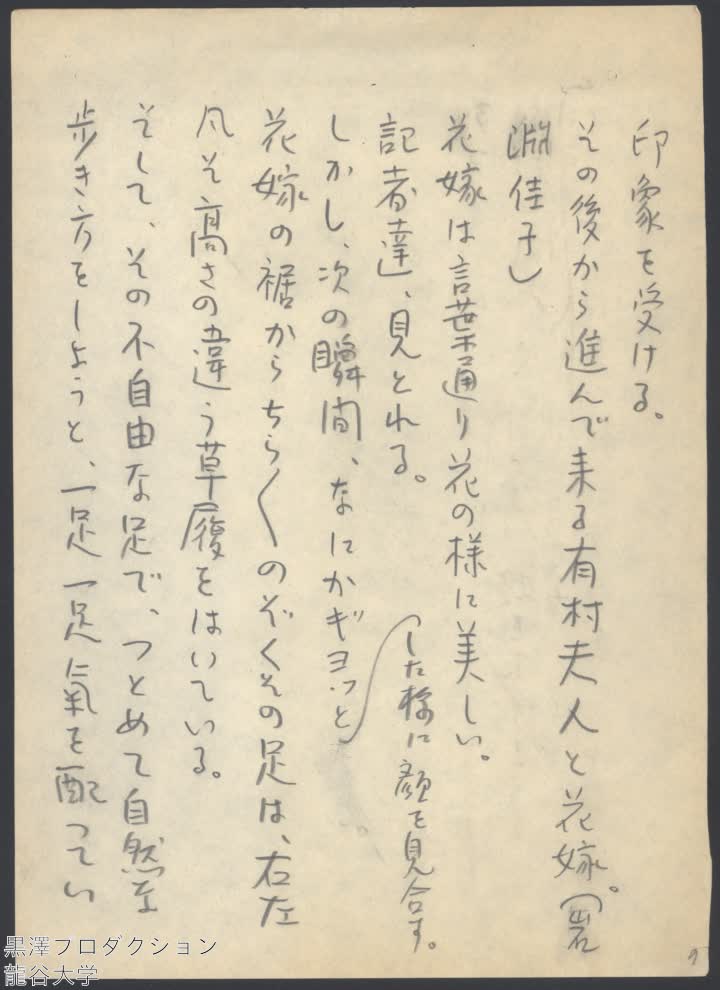 印象を受ける。
その後から進んで来る有村夫人と花嫁。(岩
淵佳子)
花嫁は言葉通り花の様に美しい。
記者達、見とれる。
しかし、次の瞬間、なにかギヨッと
した様に顔を見合す。
花嫁の裾からちら〱のぞくその足は、右左
凡そ高さの違う草履をはいている。
そして、その不自由な足で、つとめて自然な
歩き方をしようと、一足一足氣を配ってい
9
黒澤プロダクション
龍谷大学